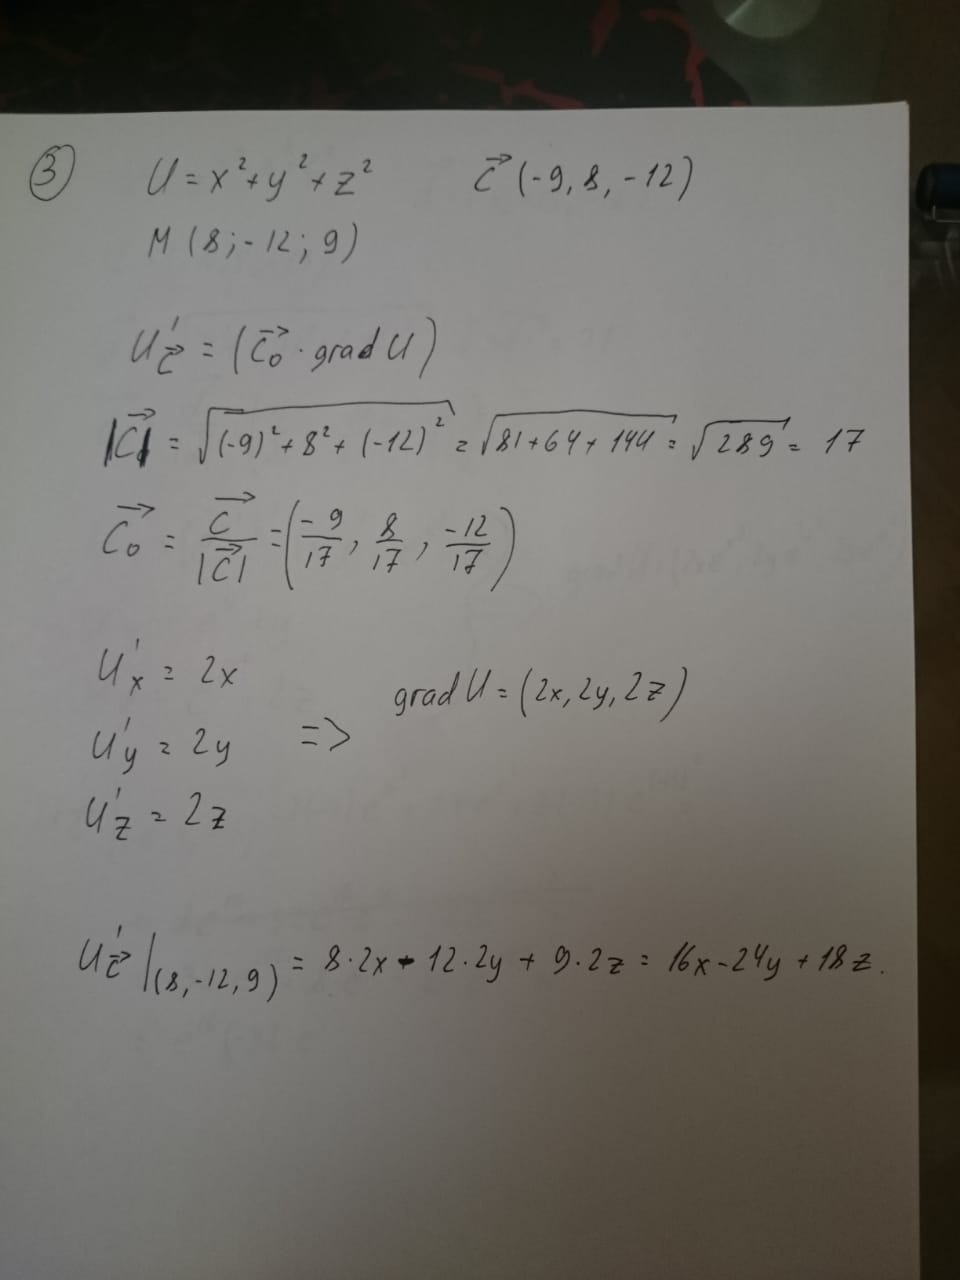 ③ U = x² + y² + z² c⃗ (-9, 8, -12)
M (8; -12; 9)
U'c⃗ = (c⃗₀ · grad U)
|c⃗| = √((-9)² + 8² + (-12)²) = √(81 + 64 + 144) = √289 = 17
c⃗₀ = c⃗/|c⃗| = (-9/17, 8/17, -12/17)
U'x = 2x
grad U = (2x, 2y, 2z)
U'y = 2y =>
U'z = 2z
U'c⃗ |(8, -12, 9) = 8·2x - 12·2y + 9·2z = 16x - 24y + 18z.